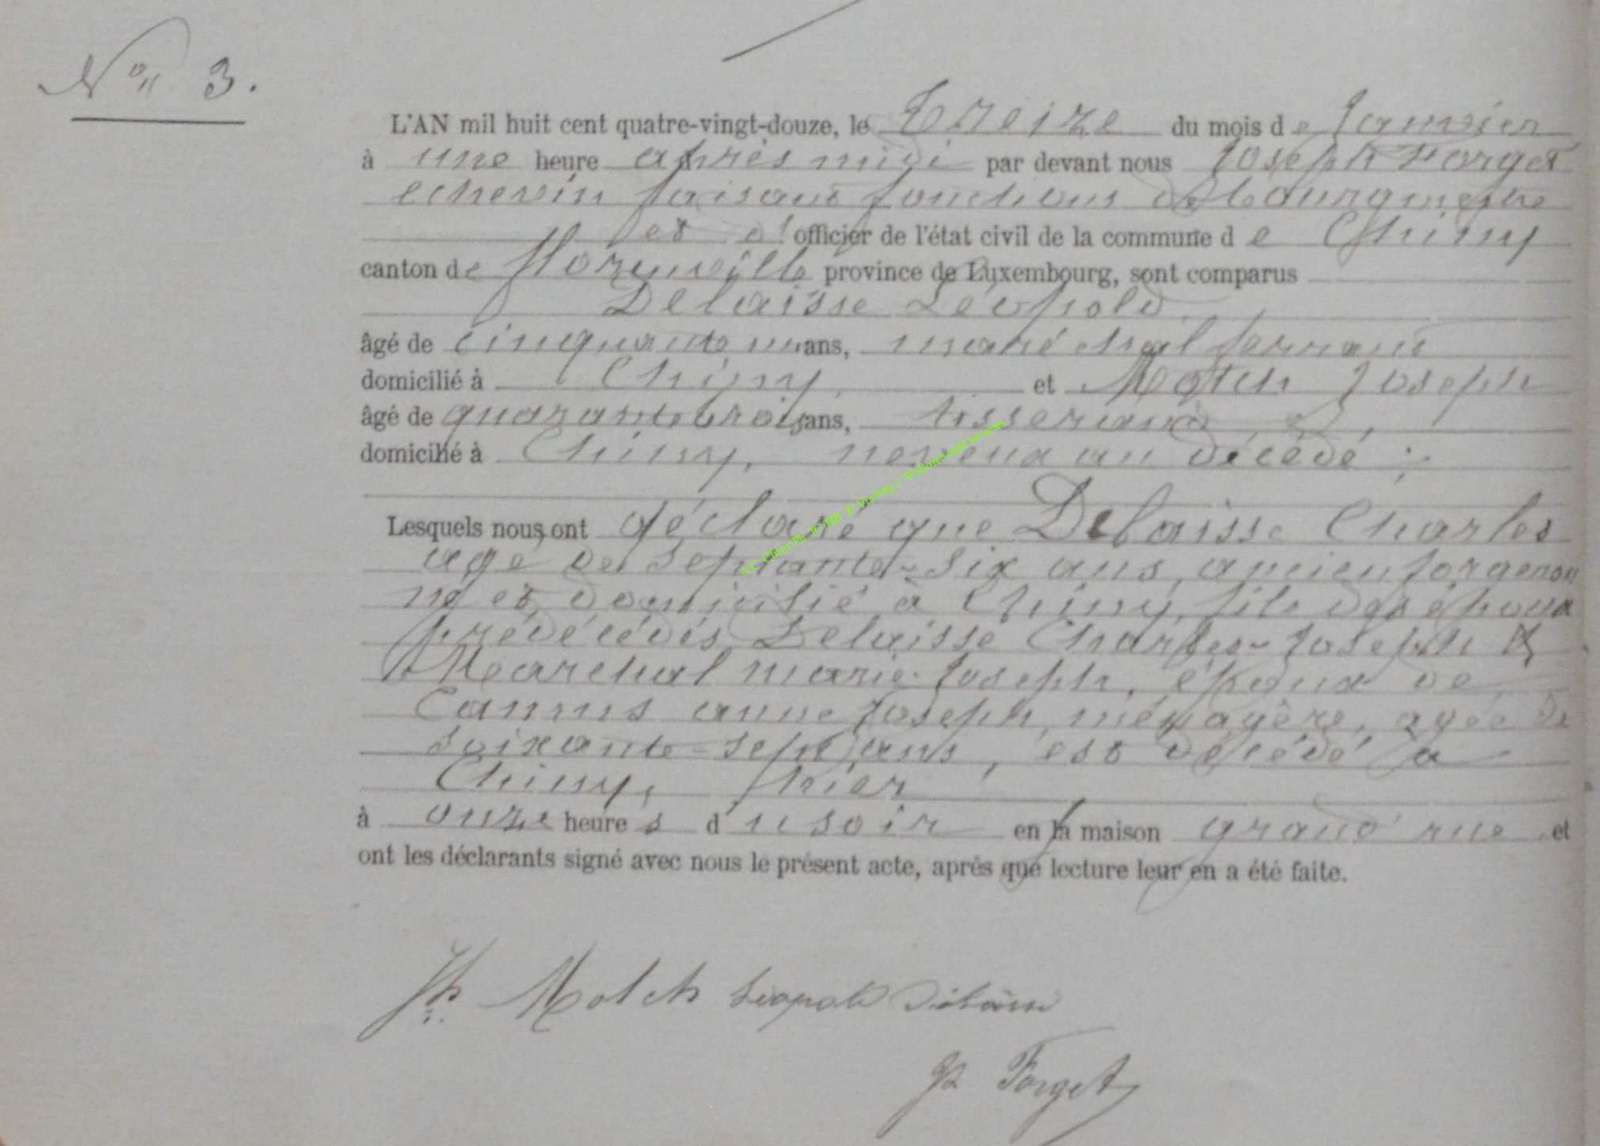 N° 3.
L'AN mil huit cent quatre-vingt-douze, le treize du mois de Janvier
à une heure après midi par devant nous Joseph Forget
echevin faisant fonctions de bourgmestre
et d'officier de l'état civil de la commune de Chiny
canton de florenville province de Luxembourg, sont comparus
Delaisse Léopold
âgé de cinquante un ans, maréchal ferrant
domicilié à Chiny, et Motch Joseph
âgé de quarante trois ans, tisserand
domicilié à Chiny, neveux au décédé ;
Lesquels nous ont déclaré que Delaisse Charles
agé de septante-six ans, ancien forgeron
né et domicilié à Chiny, fils des époux
prédécédés Delaisse Charles-Joseph &
Marechal marie-Joseph, époux de
anne Joseph, ménagère, agée de
soixante-sept ans, est décédé à
Chiny, hier
à onze heures du soir en la maison grand'rue et
ont les déclarants signé avec nous le présent acte, après que lecture leur en a été faite.
Jh Motch Léopold Delaisse
Forget